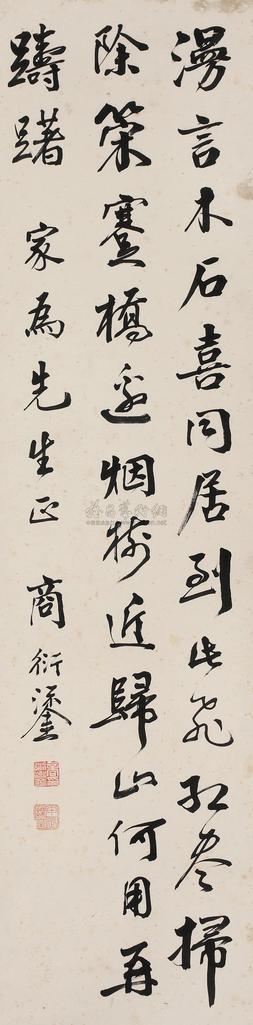 漫言木石喜同居到此飛紅盡掃
除策蹇橋邊烟樹近歸山何用再
躊躇 家為先生正 商衍鎏